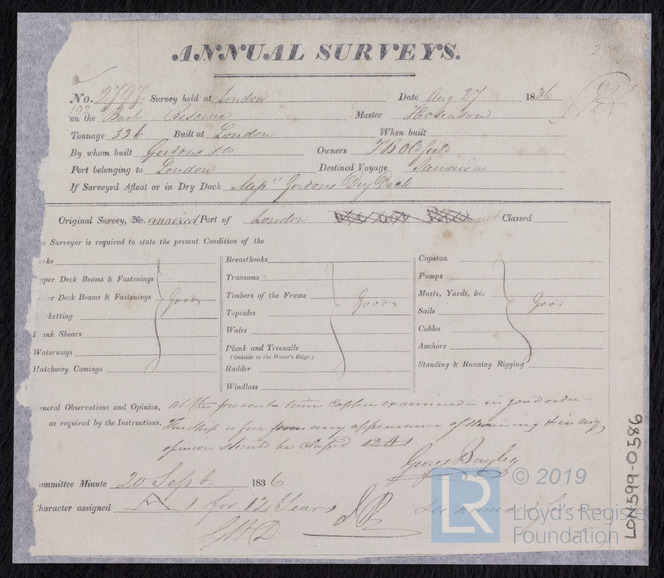 ANNUAL SURVEYS.
No. 2797 Survey held at London Date Aug 27 1836
on the Bark Reserve Master
Tonnage 336 Built at London When built
By whom built Gordon & Co Owners T B Oldfield
Port belonging to London Destined Voyage Jamaica
If Surveyed Afloat or in Dry Dock Messrs Gordons Dry Dock
Original Survey, No. annexed Port of London not Classed
e Surveyor is required to state the present Condition of the
cks
per Deck Beams & Fastenings
er Deck Beams & Fastenings Good
ketting
nk Shears
Waterways
Hatchway Comings
Breasthooks
Transoms
Timbers of the Frame Good
Topsides
Wales
Plank and Treenails
(Outside to the Water's Edge.)
Rudder
Windlass
Capstan
Pumps
Masts, Yards, &c.
Sails Good
Cables
Anchors
Standing & Running Rigging
neral Observations and Opinion, at the present time Copper examined in good order
as required by the Instructions. This ship is free from any appearance of straining & in my
opinion should be classed 12 A 1
George Bayley
ommittee Minute 20 Sept 1836
haracter assigned A 1 for 12 Years
LR
© 2019
Lloyd's Register
Foundation
LON599-0586